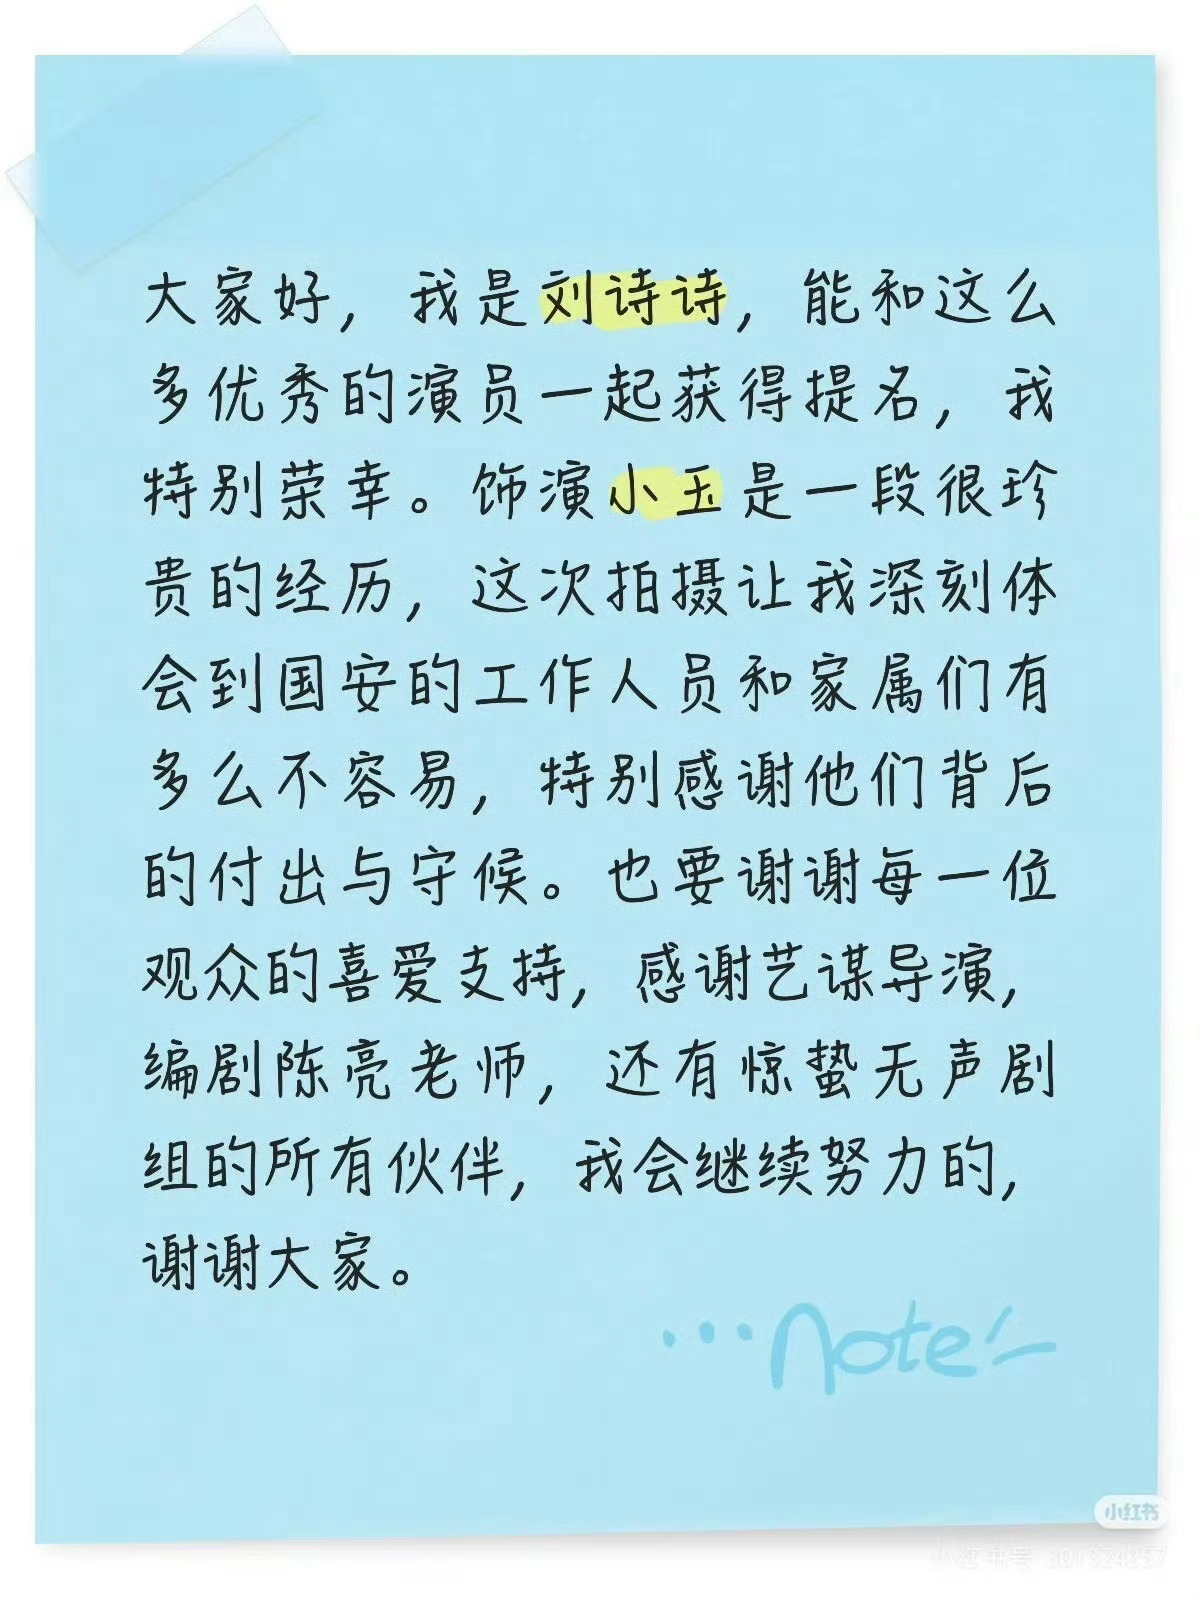 大家好，我是刘诗诗，能和这么
多优秀的演员一起获得提名，我
特别荣幸。饰演小玉是一段很珍
贵的经历，这次拍摄让我深刻体
会到国安的工作人员和家属们有
多么不容易，特别感谢他们背后
的付出与守候。也要谢谢每一位
观众的喜爱支持，感谢艺谋导演，
编剧陈亮老师，还有惊蛰无声剧
组的所有伙伴，我会继续努力的，
谢谢大家。
...note
小红书